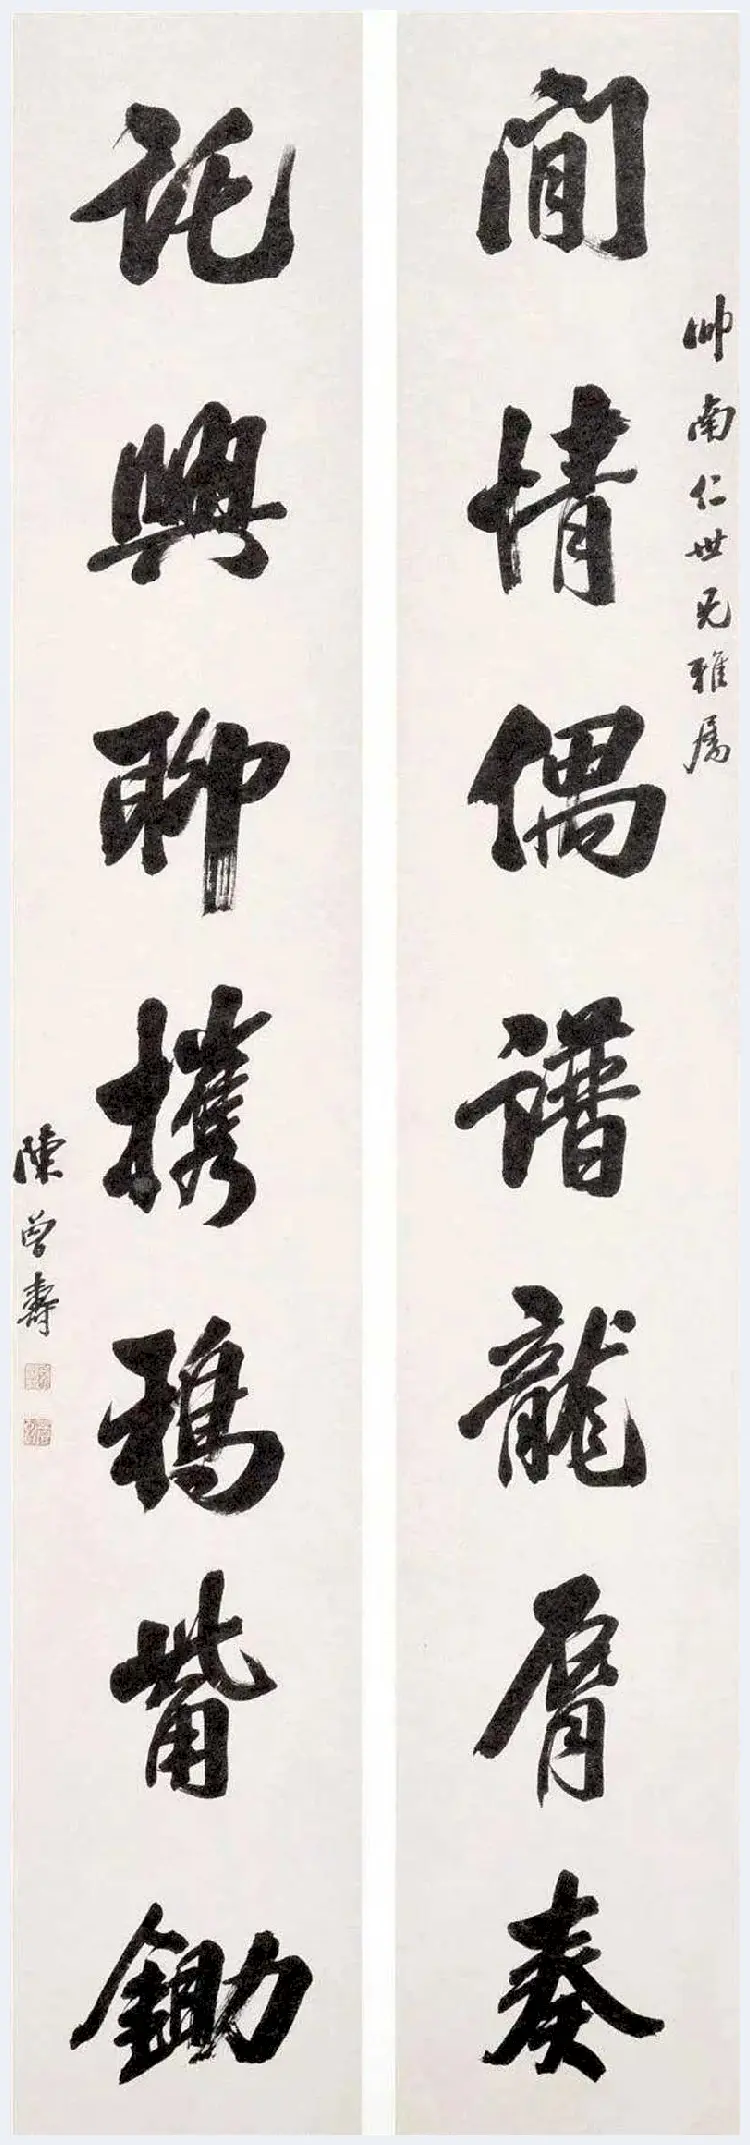 閒情偶譜龍脣奏
帥南仁世兄雅属
託興聊攜鴉觜鋤
陳曾壽